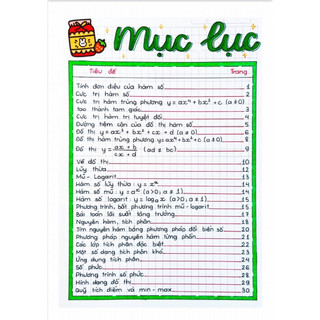 mục lục
Tiêu đề Trang
Tính đơn điệu của hàm số 1
Cực trị hàm số 2
Cực trị hàm trùng phương y = ax⁴ + bx² + c (a ≠ 0)
tạo thành tam giác 3
Cực trị hàm trị tuyệt đối 4
Đường tiệm cận của đồ thị hàm số 5
Đồ thị y = ax³ + bx² + cx + d (a ≠ 0) 6
Đồ thị hàm trùng phương y = ax⁴ + bx² + c (a ≠ 0) 8
Đồ thị y = ax + b / cx + d (ad ≠ bc) 9
Vẽ đồ thị 10
Lũy thừa 12
Mũ - Logarit 13
Hàm số lũy thừa: y = xᵅ 14
Hàm số mũ: y = aˣ (a > 0, a ≠ 1) 14
Hàm số logarit: y = logₐx (a > 0; a ≠ 1) 15
Phương trình, bất phương trình mũ - logarit 15
Bài toán lãi suất tăng trưởng 17
Nguyên hàm, tích phân 18
Tìm nguyên hàm bằng phương pháp đổi biến số 20
Phương pháp nguyên hàm từng phần 21
Các lớp tích phân đặc biệt 22
Một số dạng tích phân khó 23
Ứng dụng tích phân 24
Số phức 26
Phương trình số phức 28
Hình dạng đồ thị 29
Quỹ tích điểm và min - max 30